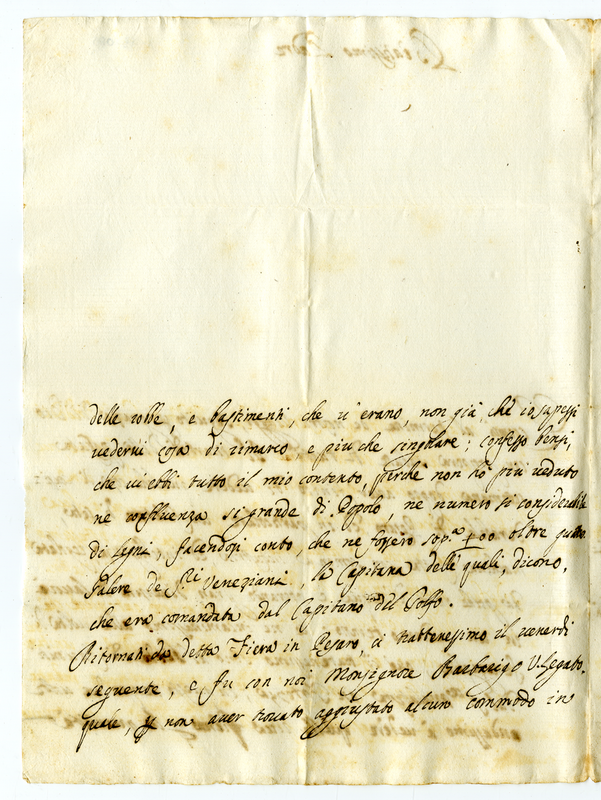 delle robbe, e bastimenti, che v'erano, non già, che io sapessi
vedervi cosa di rimarco, e più che singolare; confesso bensì,
che vi ebbi tutto il mio contento, perchè non hò più veduto
ne confluenza sì grande di Popolo, ne numero sì considerabile
di Legni, facendosi conto, che ne fossero sop.ª 400 oltre quattro
Galere de S.ri Veneziani, la Capitana delle quali, dicono,
che era comandata dal Capitano del Golfo.
Ritornati da detta Fiera in Pesaro, ci trattenessimo il venerdì
seguente, e fu con noi Monsignore Barbarigo V. Legato,
quale, p non aver trovato aggiustato alcun commodo in